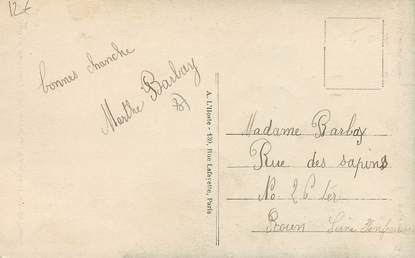 12€
bonnes chanche
Marthe Barbay
A. L'Hoste - 139, Rue Lafayette, Paris
Madame Barbay
Rue des sapins
No. 26 ter
Rouen Seine Inférieure